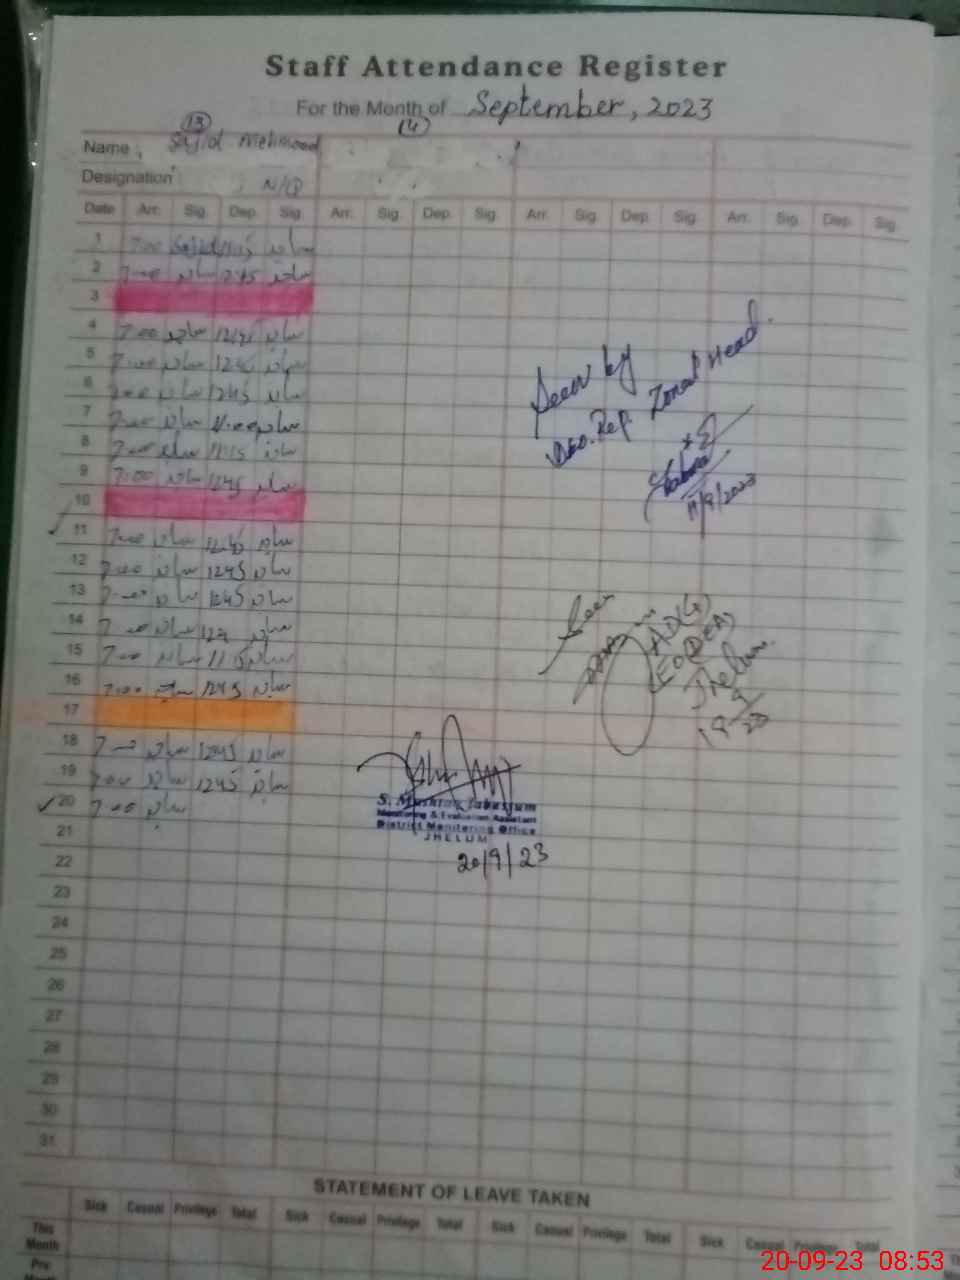 Staff Attendance Register
For the Month of September, 2023
13 14
Name Sajid Mehmood
Designation N/Q
Date Arr. Sig. Dep. Sig. Arr. Sig. Dep. Sig. Arr. Sig. Dep. Sig. Arr. Sig. Dep. Sig.
1 7:00 Sajid 1115 ساجد
2 7:00 ساجد 1245 ساجد
3
4 7:00 ساجد 1245 ساجد
5 7:00 ساجد 1245 ساجد
6 7:00 ساجد 1245 ساجد
7 7:00 ساجد ساجد
8 7:00 ساجد 1115 ساجد
9 7:00 ساجد 1245 ساجد
10
11 7:00 ساجد 1245 ساجد
12 7:00 ساجد 1245 ساجد
13 7:00 ساجد 1245 ساجد
14 7:00 ساجد ساجد
15 7:00 ساجد 1115 ساجد
16 7:00 ساجد 1245 ساجد
17
18 7:00 ساجد 1245 ساجد
19 7:00 ساجد 1245 ساجد
20 7:00 ساجد
21
22
23
24
25
26
27
28
29
30
31
Seen by
Rep. Zonal Head.
11/9/2023
Seen
Jhelum.
S. Mushtaq Tabassum
Monitoring & Evaluation Assistant
District Monitoring Office
JHELUM
20/9/23
STATEMENT OF LEAVE TAKEN
Sick Casual Privilege Total Sick Casual Privilege Total Sick Casual Privilege Total Sick Casual Privilege Total
This Month
Pre
20-09-23 08:53